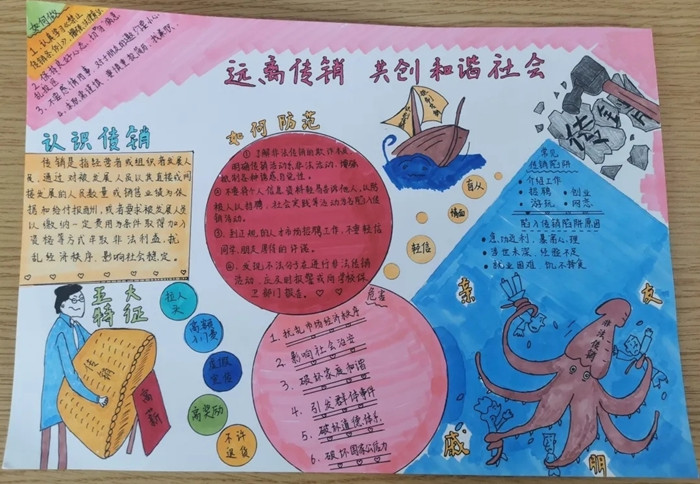 如何做
远离传销 共创和谐社会
认识传销
传销是指组织者或经营者发展人
员,通过对被发展人员以其直接或间
接发展的人员数量或销售业绩为依
据和给付报酬,或者要求被发展人员
以缴纳一定费用为条件取得加入
资格等方式牟取非法利益,扰
乱经济秩序,影响社会稳定。
如何防范
①了解非法传销的欺诈本质
明确传销活动是非法活动,增强
抵制各种诱惑自觉性。
②不要将个人信息资料轻易告诉他人,以防
被人以招聘、社会实践等活动为名陷入传
销活动。
③到正规的人才市场招聘工作,不要轻信
同学、朋友、亲信的许诺。
④发现不法分子在进行非法传销
活动,应及时报警或向学校保
卫部门报告。
盲从
轻信
常见
传销陷阱
介绍工作
招聘
创业
游玩
网恋
陷入传销陷阱原因
急功近利,暴富心理
涉世未深,经验不足
就业困难,饥不择食
五大
特征
传销
高薪
拉人
头
高额
入门费
虚假
宣传
高奖励
不许
退货
危害
1. 扰乱市场经济秩序
2. 影响社会治安
3. 破坏家庭和谐
4. 引发群体事件
5. 破坏道德体系
亲
友
非法传销
戚
朋